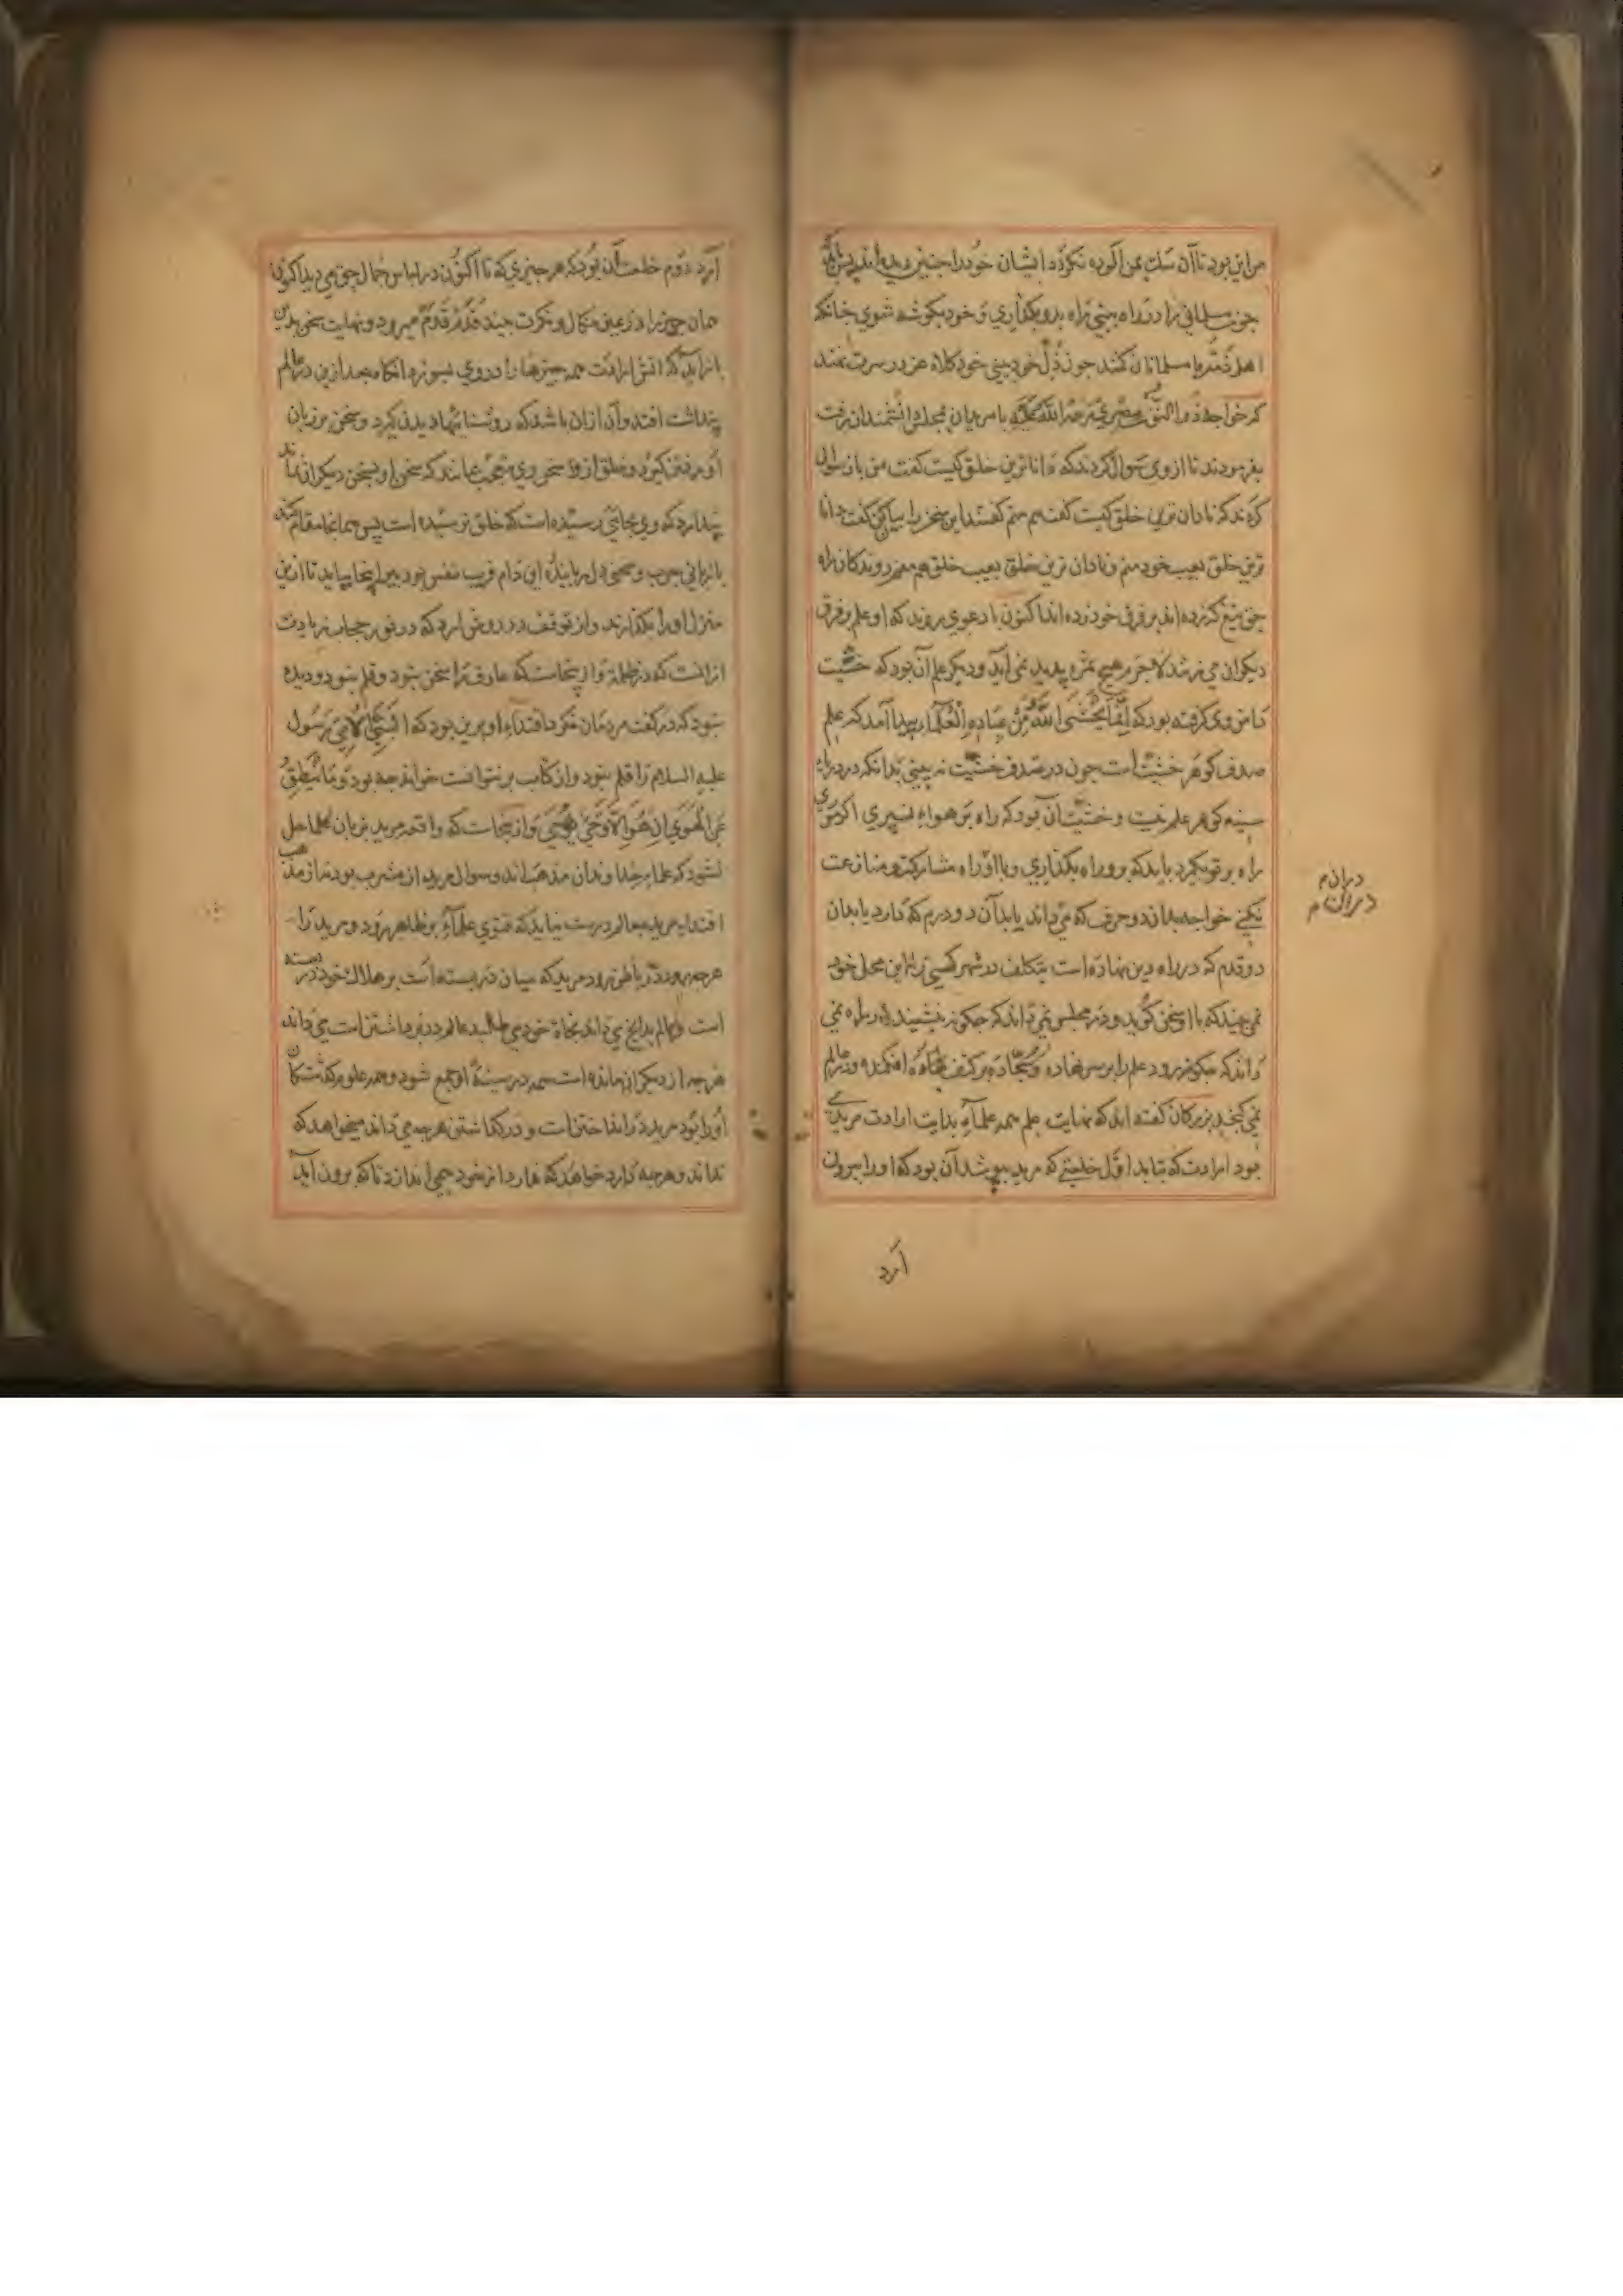 من این بود تا آن سگ بمن آلوده نگردد ایشان خود را چنین دیده‌اند
چون مسلمانی را در راه بینی راه بدو بگذاری و خود بگوشه شوی چنانکه
اهل ذمت با مسلمانان کنند چون ذل خود بینی خود کلاه عز در سرت نهند
که خواجه ذوالنون مصری رحمة الله علیه با مریدان بمجلس دانشمندان رفت
بفرمودند تا از وی سوال کردند که داناترین خلق کیست گفت من باز سوال
کردند که نادان ترین خلق کیست گفت هم منم گفتند این سخن را بیان کن گفت دانا
ترین خلق بعیب خود منم و نادان ترین خلق بعیب خلق هم منم روندکان راه
حق تیغ کز زده‌اند بر فرق خود زده‌اند اکنون با دعوی بروند که او علم بر فرق
دیکران می زند لاجرم هیچ ثمره پدید نمی آید و دیکر علم آن بود که خشیت
دامن وی گرفته بود که اِنَّمَا یَخْشَی اللّٰهَ مِنْ عِبَادِهِ الْعُلَمَاءُ پیدا آمد که علم
صدف گوهر خشیت است چون در صدف خشیت نه بینی بدانکه در دریای
سینه گوهر علم نیست و خشیت آن بود که راه بر هواء نسپری اگر موری
راه بر تو بگیرد باید که برو راه بگذاری و با او راه مشارکت و منازعت
نکنی خواجه بداند و حرف که می داند یا بدان دو درم که دارد یا بدان
دو قدم که در راه دین نهاده است بتکلف در شهر کسی را این محل خود
نمی بیند که با او سخن گوید و در مجلس نمی داند که چگونه نشیند و در راه نمی
داند که چگونه رود علم را بر سر نهاده و سجاده بر کتف افکنده و در عالم
نمی گنجد بزرگان گفته اند که نهایت علم همه علماء بدایت ارادت مریدی
بود ارادت که بتابد اوّل خلعتی که مرید بپوشد آن بود که او را بیرون
درانم
آرد
آرد دوم خلعت آن بود که هر چیزی که تا اکنون در لباس جمال حق می دید اکنون
همان چیز را در عین و نکرت بیند قدم قدم میرود و نهایت سخن بدین
باز آید که آتش ارادت همه چیزها را در وی بسوزد آنگاه بعد ازین در عالم
پنداشت افتد و آن ازان باشد که روشناییها دیدن گیرد و سخن بر زبان
او رفتن گیرد و خلق از سخن وی متعجب بمانند که سخن او بسخن دیکران نماند
پندارد که وی بجائی رسیده است که خلق نرسیده است پس همانجا مقام کند
با زبانی چرب و سخنی دل رباینده این دام فریب نفس بود پیر اینجا بباید تا ازین
منزل او را بگذراند و از توقف در روش آرد که در نور حجاب زیادت
ازانست که در ظلمة و از ینجاست که عارف را سخن نبود و قلم نبود و دیده
نبود که در گفت مردمان نگرد اقتداء او برین بود که النَّبِیُّ الْاُمِّیُّ رسول
علیه السلام را قلم نبود و از کتاب بر نتوانست خواند چه بود وَمَا یَنْطِقُ
عَنِ الْهَوٰی اِنْ هُوَ اِلَّا وَحْیٌ یُوحٰی و از ینجاست که واقعه مرید بزبان علما حل
نشود که علما خداوندان مذهب‌اند و سوال مرید از مشرب بود نه از مذهب
اقتداء مرید بعالم درست نیاید که فتوی علماء بر ظاهر رود و مرید را
هرچه رود در باطن رود مرید که میان در بسته است بر هلاک خود در بسته
است و عالم بدانچ می داند نجاة خود می طلبد عالم در فرداشتن است می داند
هرچه از دیکران مانده است همه در سینهٔ او جمع شود و همه علوم گذشتکان
او را بود مرید در انداختن است و در گذاشتن هرچه می داند میخواهد که
نداند و هرچه دارد خواهد که ندارد از خود چیزی اندازد تا که برون آید